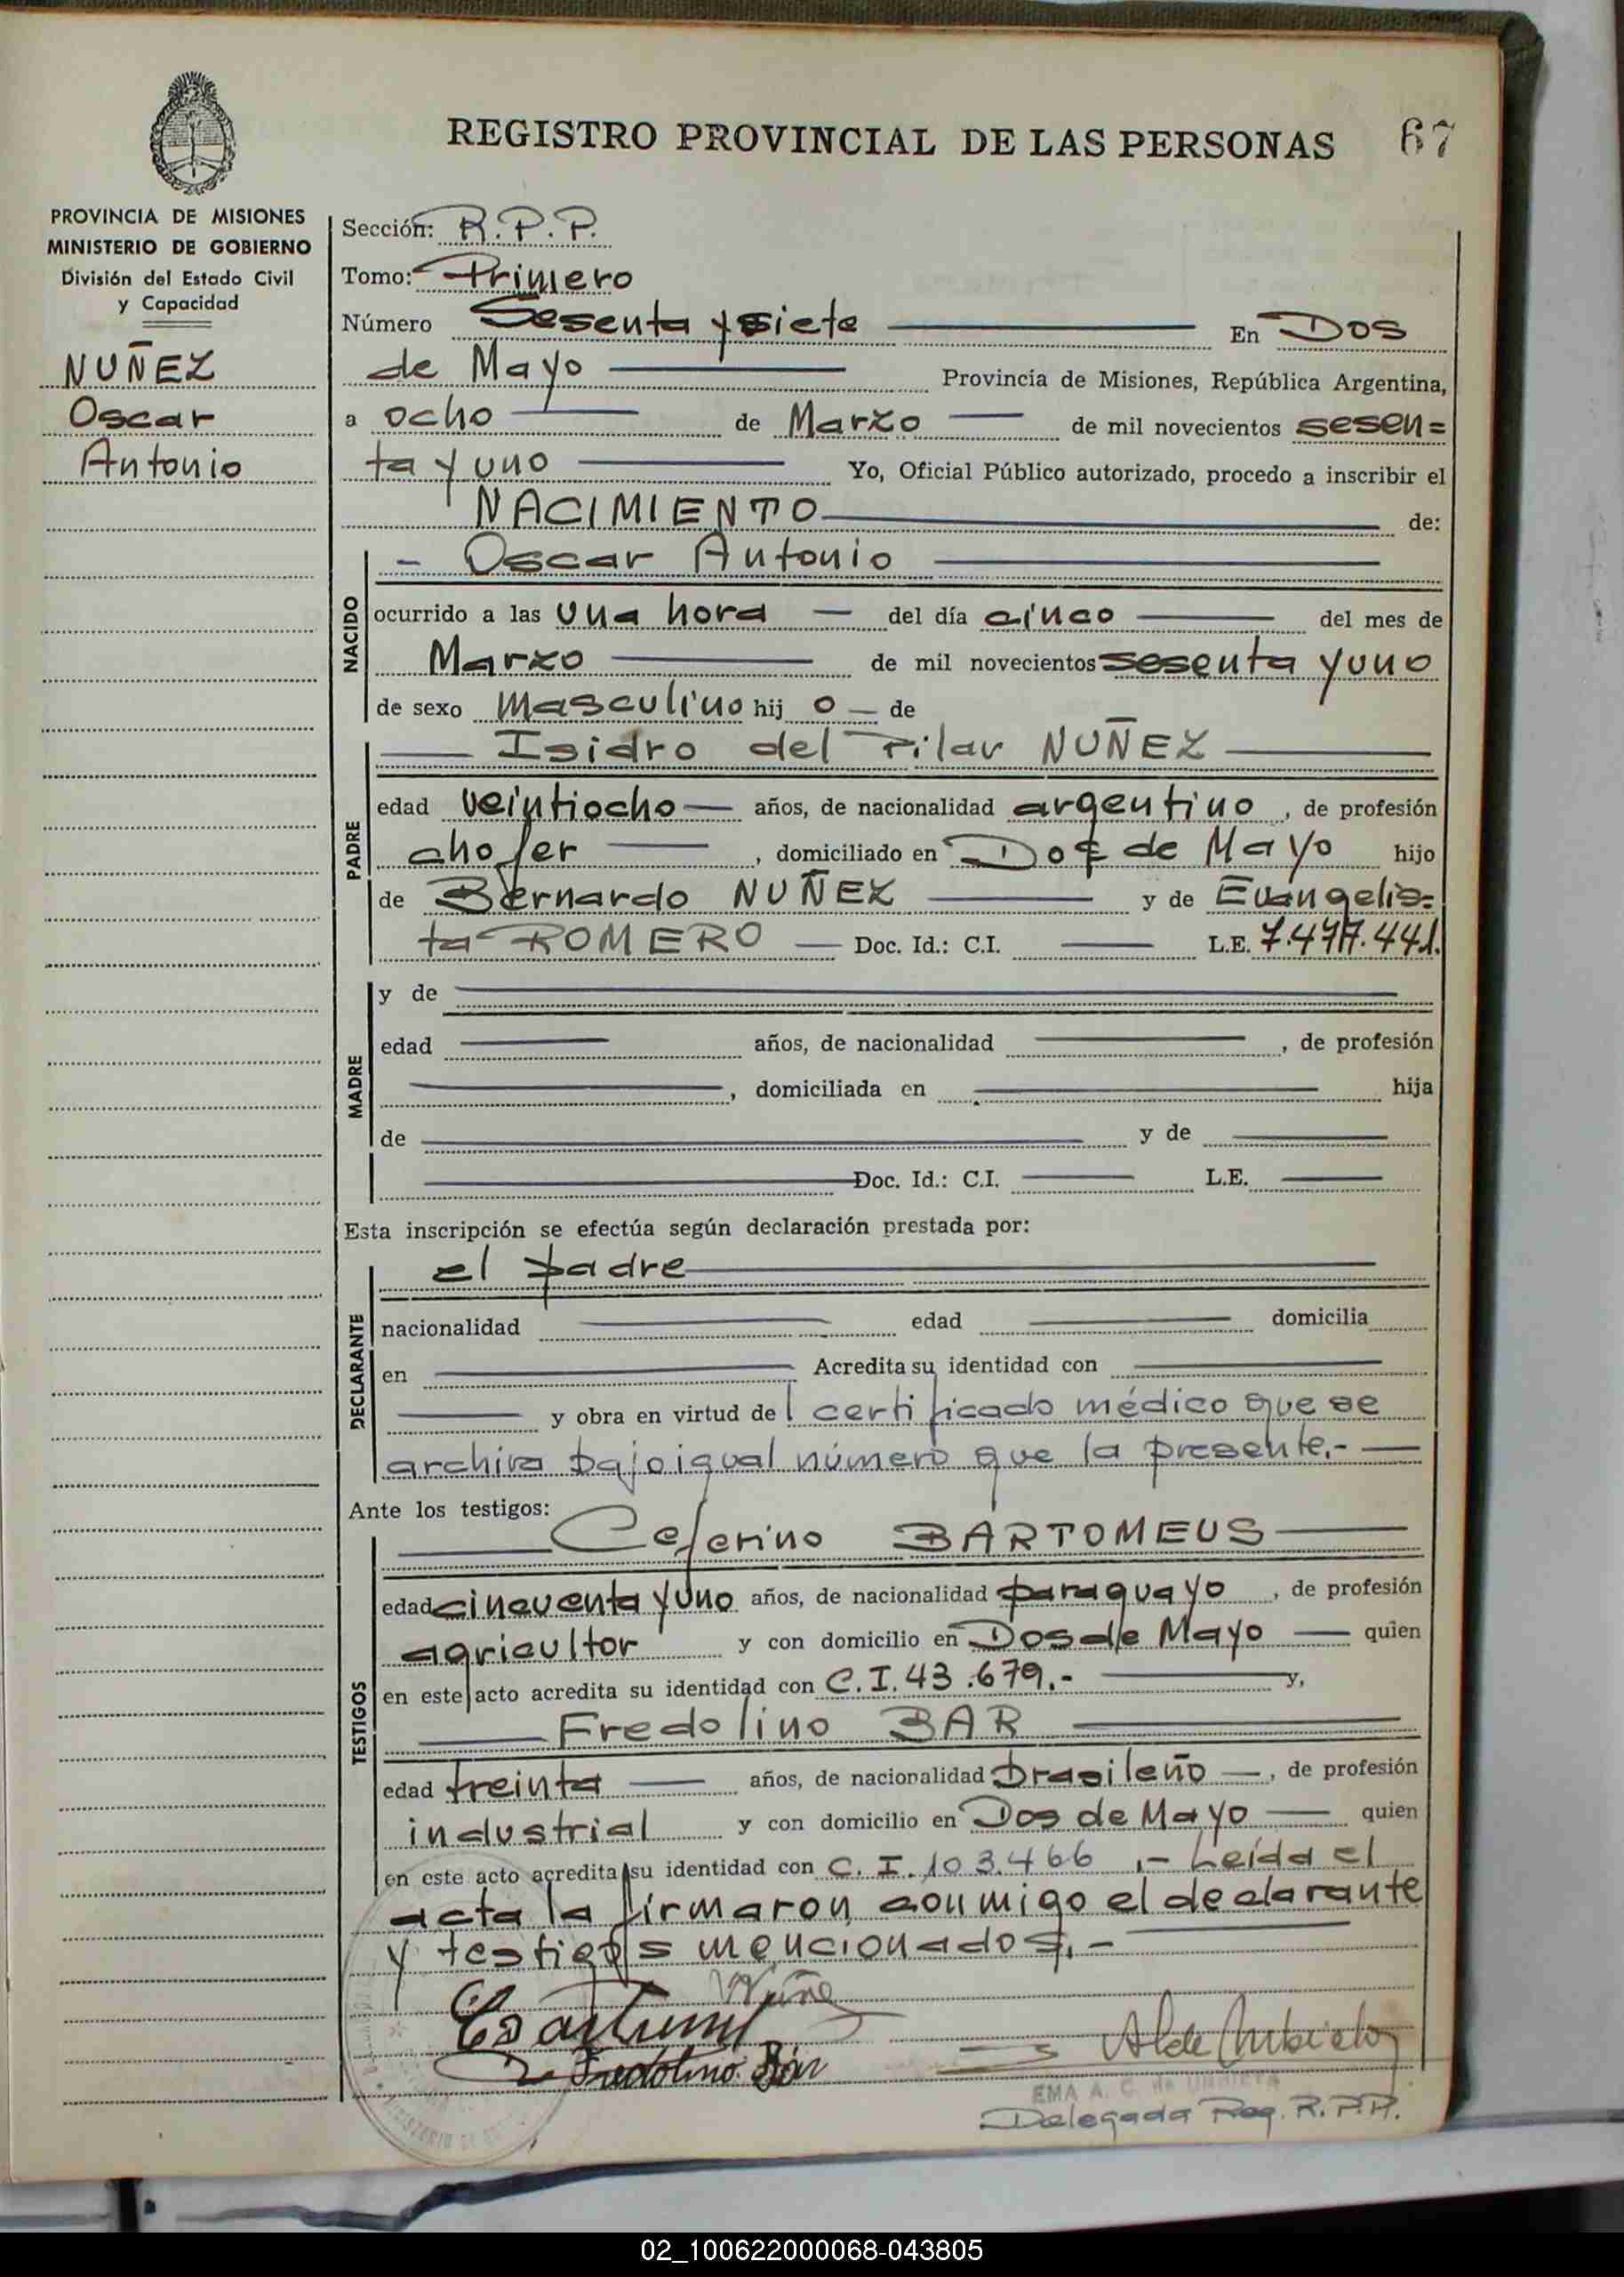 REGISTRO PROVINCIAL DE LAS PERSONAS 67
PROVINCIA DE MISIONES
MINISTERIO DE GOBIERNO
División del Estado Civil
y Capacidad
NUÑEZ
Oscar
Antonio
Sección: R.P.P.
Tomo: Primero
Número Sesenta y siete En Dos
de Mayo Provincia de Misiones, República Argentina,
a ocho de Marzo de mil novecientos sesen=
ta y uno Yo, Oficial Público autorizado, procedo a inscribir el
NACIMIENTO de:
- Oscar Antonio
NACIDO
ocurrido a las una hora del día cinco del mes de
Marzo de mil novecientos sesenta y uno
de sexo masculino hij o de
PADRE
Isidro del Pilar NUÑEZ
edad veintiocho años, de nacionalidad argentino, de profesión
chofer, domiciliado en Dos de Mayo hijo
de Bernardo NUÑEZ y de Evangelis=
ta ROMERO Doc. Id.: C.I. L.E. 7.477.441.
MADRE
y de
edad años, de nacionalidad , de profesión
, domiciliada en hija
de y de
Doc. Id.: C.I. L.E.
Esta inscripción se efectúa según declaración prestada por:
DECLARANTE
el padre
nacionalidad edad domicilia
en Acredita su identidad con
y obra en virtud del certificado médico que se
archiva bajo igual número que la presente.-
Ante los testigos:
TESTIGOS
Ceferino BARTOMEUS
edad cincuenta y uno años, de nacionalidad paraguayo, de profesión
agricultor y con domicilio en Dos de Mayo quien
en este acto acredita su identidad con C.I. 43.679.- y,
Fredolino BAR
edad treinta años, de nacionalidad brasileño, de profesión
industrial y con domicilio en Dos de Mayo quien
en este acto acredita su identidad con C.I. 103.466.- Leída el
acta la firmaron conmigo el declarante
y testigos mencionados.-
Fredolino Bár
EMA A. C. de URBIETA
Delegada Reg. R.P.P.
02_100622000068-043805